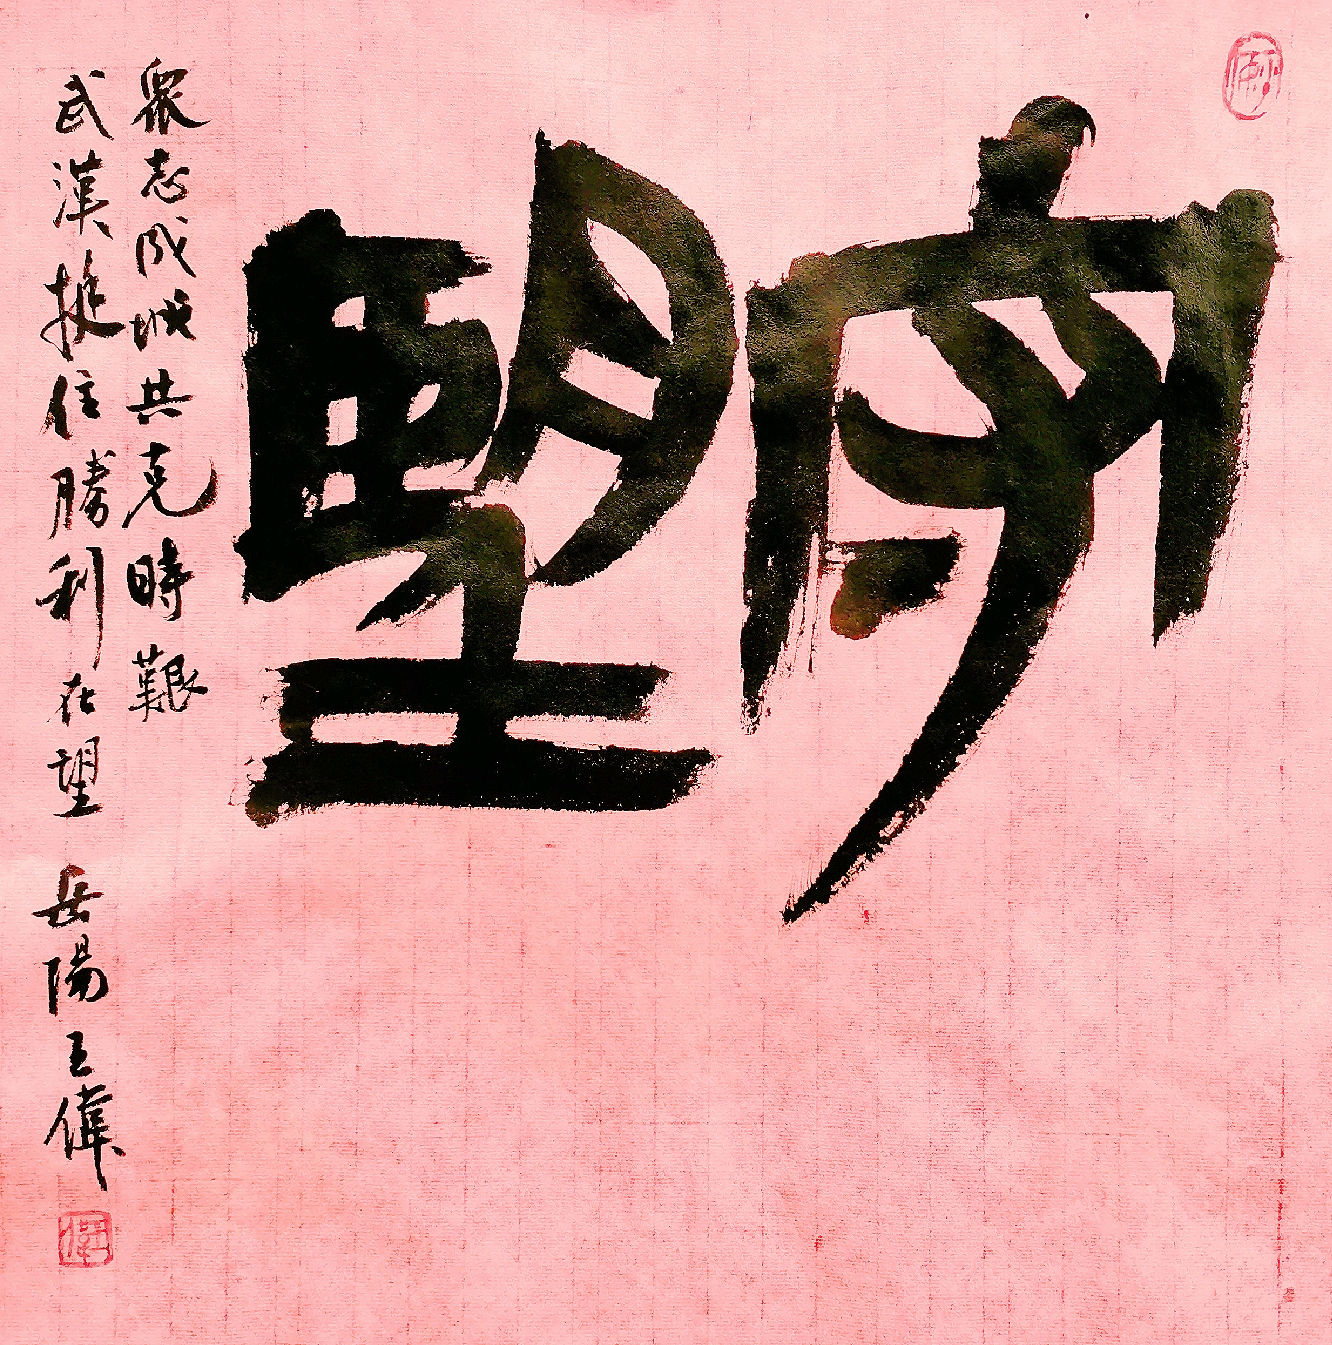 守望
眾志成城共克時艱
武漢挺住勝利在望 岳陽王偉
偉